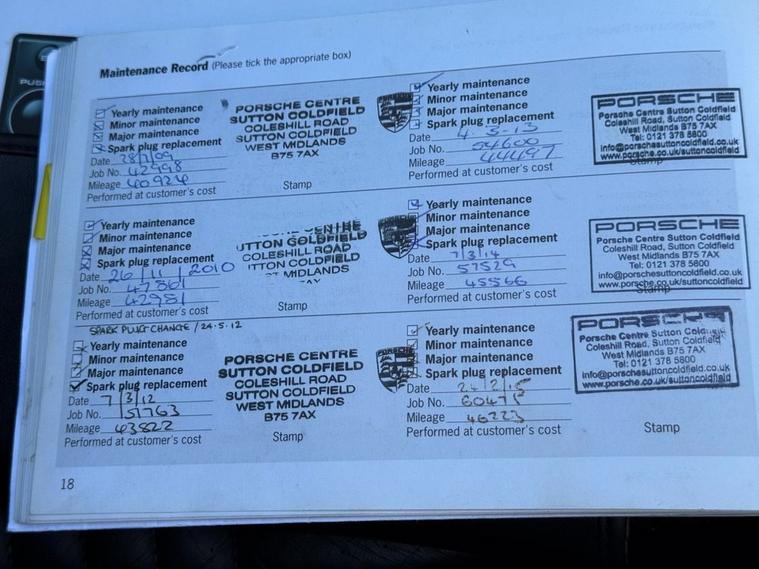 Maintenance Record (Please tick the appropriate box)
Yearly maintenance
Minor maintenance
Major maintenance
Spark plug replacement
Date 28/1/09
Job No. 42998
Mileage 40924
Performed at customer's cost
PORSCHE CENTRE
SUTTON COLDFIELD
COLESHILL ROAD
SUTTON COLDFIELD
WEST MIDLANDS
B75 7AX
Stamp
Yearly maintenance
Minor maintenance
Major maintenance
Spark plug replacement
Date 4-3-13
Job No. 54600
Mileage 44497
Performed at customer's cost
PORSCHE
Porsche Centre Sutton Coldfield
Coleshill Road, Sutton Coldfield
West Midlands B75 7AX
Tel: 0121 378 5800
info@porschesuttoncoldfield.co.uk
www.porsche.co.uk/suttoncoldfield
Yearly maintenance
Minor maintenance
Major maintenance
Spark plug replacement
Date 26/11/2010
Job No. 47861
Mileage 42981
UTTON COLDFIELD
COLESHILL ROAD
TTON COLDFIELD
MIDLANDS
Stamp
Yearly maintenance
Minor maintenance
Major maintenance
Spark plug replacement
Date 7/3/14
Job No. 57529
Mileage 45566
Performed at customer's cost
PORSCHE
Porsche Centre Sutton Coldfield
Coleshill Road, Sutton Coldfield
West Midlands B75 7AX
Tel: 0121 378 5800
info@porschesuttoncoldfield.co.uk
www.porsche.co.uk/suttoncoldfield
Stamp
SPARK PLUG CHANGE / 24.5.12
Yearly maintenance
Minor maintenance
Major maintenance
Spark plug replacement
Date 7/3/12
Job No. 51763
Mileage 43822
Performed at customer's cost
PORSCHE CENTRE
SUTTON COLDFIELD
COLESHILL ROAD
SUTTON COLDFIELD
WEST MIDLANDS
B75 7AX
Stamp
Yearly maintenance
Minor maintenance
Major maintenance
Spark plug replacement
Date 24/2/15
Job No. 60471
Mileage 46223
Performed at customer's cost
PORSCHE
Porsche Centre Sutton Coldfield
Coleshill Road, Sutton Coldfield
West Midlands B75 7AX
Tel: 0121 378 5800
info@porschesuttoncoldfield.co.uk
www.porsche.co.uk/suttoncoldfield
Stamp
18